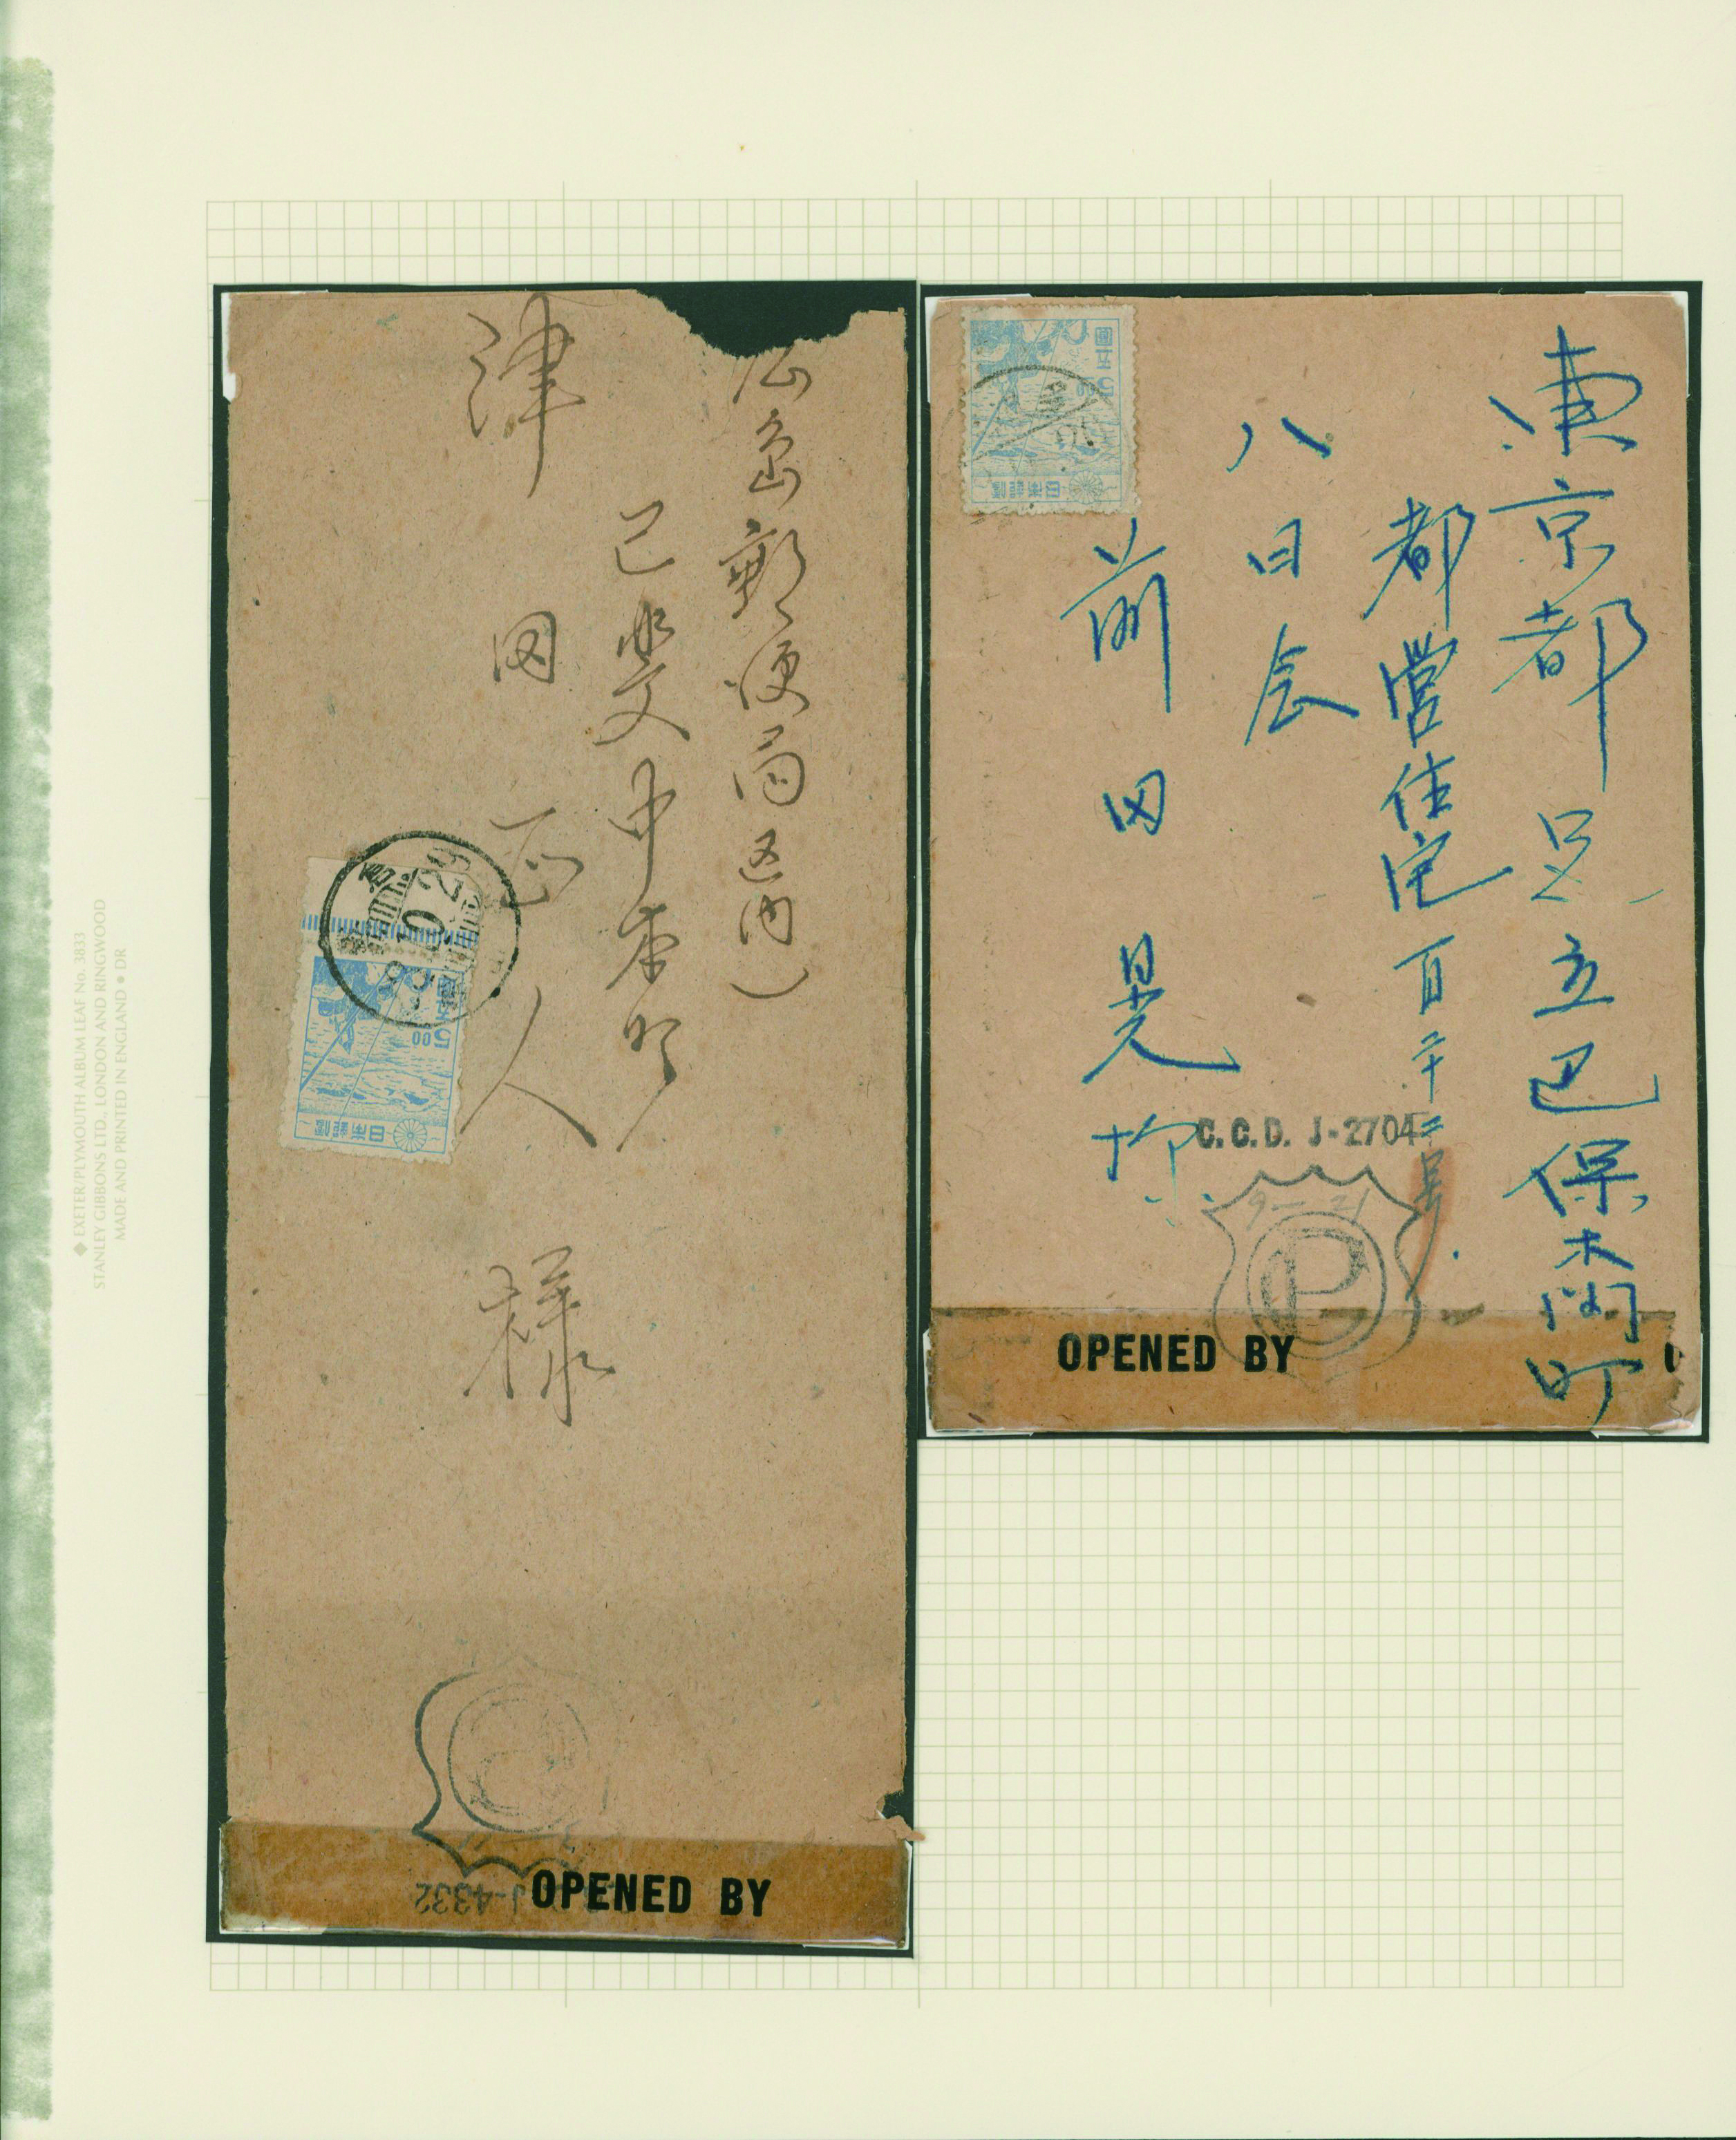 ◆ EXETER/PLYMOUTH ALBUM LEAF No. 3833
STANLEY GIBBONS LTD., LONDON AND RINGWOOD
MADE AND PRINTED IN ENGLAND ● DR
郵便局区内)
中本町
津田 正人 様
10 29
圓五
5.00
日本郵便
OPENED BY
J-4332
東京都足立区保木間町
都営住宅百二十二号
八日会
前田晃
圓五
5.00
日本郵便
C.C.D. J-2704
9-21
P
OPENED BY